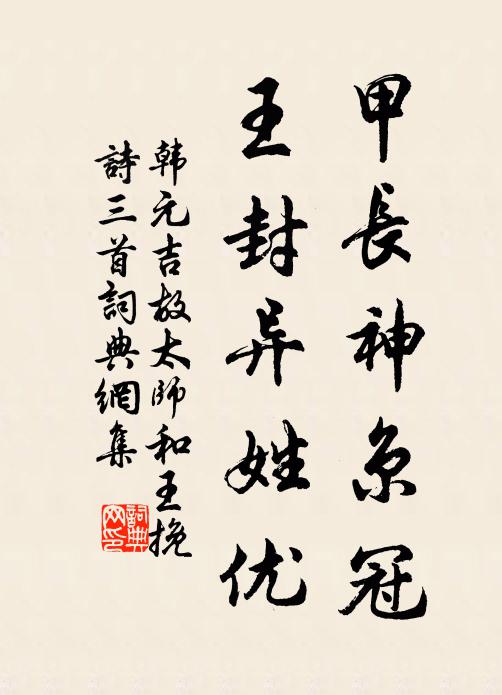 甲長神京冠
王封异姓优
韩元吉故太師和王挽
詩三首詞典網集
詞典
网印